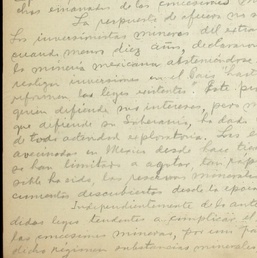 chos emanados de las concesiones
La respuesta de afuera no se
Los inversionistas mineros del extra
cuando menos diez años, declararon
la minería mexicana absteniéndose
vertir inversiones en el país hasta
reformen las leyes existentes. Este
quien defiende sus intereses, pero
que defiende su Soberanía, ha dado
de toda actividad exploratoria. Las
avecinadas en México desde hace
se han limitado a agotar, tan rápi
sible ha sido, las reservas minerales
cimientos descubiertos desde la época
Independientemente de lo ante
didas leyes tendentes a complicar el
las concesiones mineras, por una par
dicho régimen substancias minerales